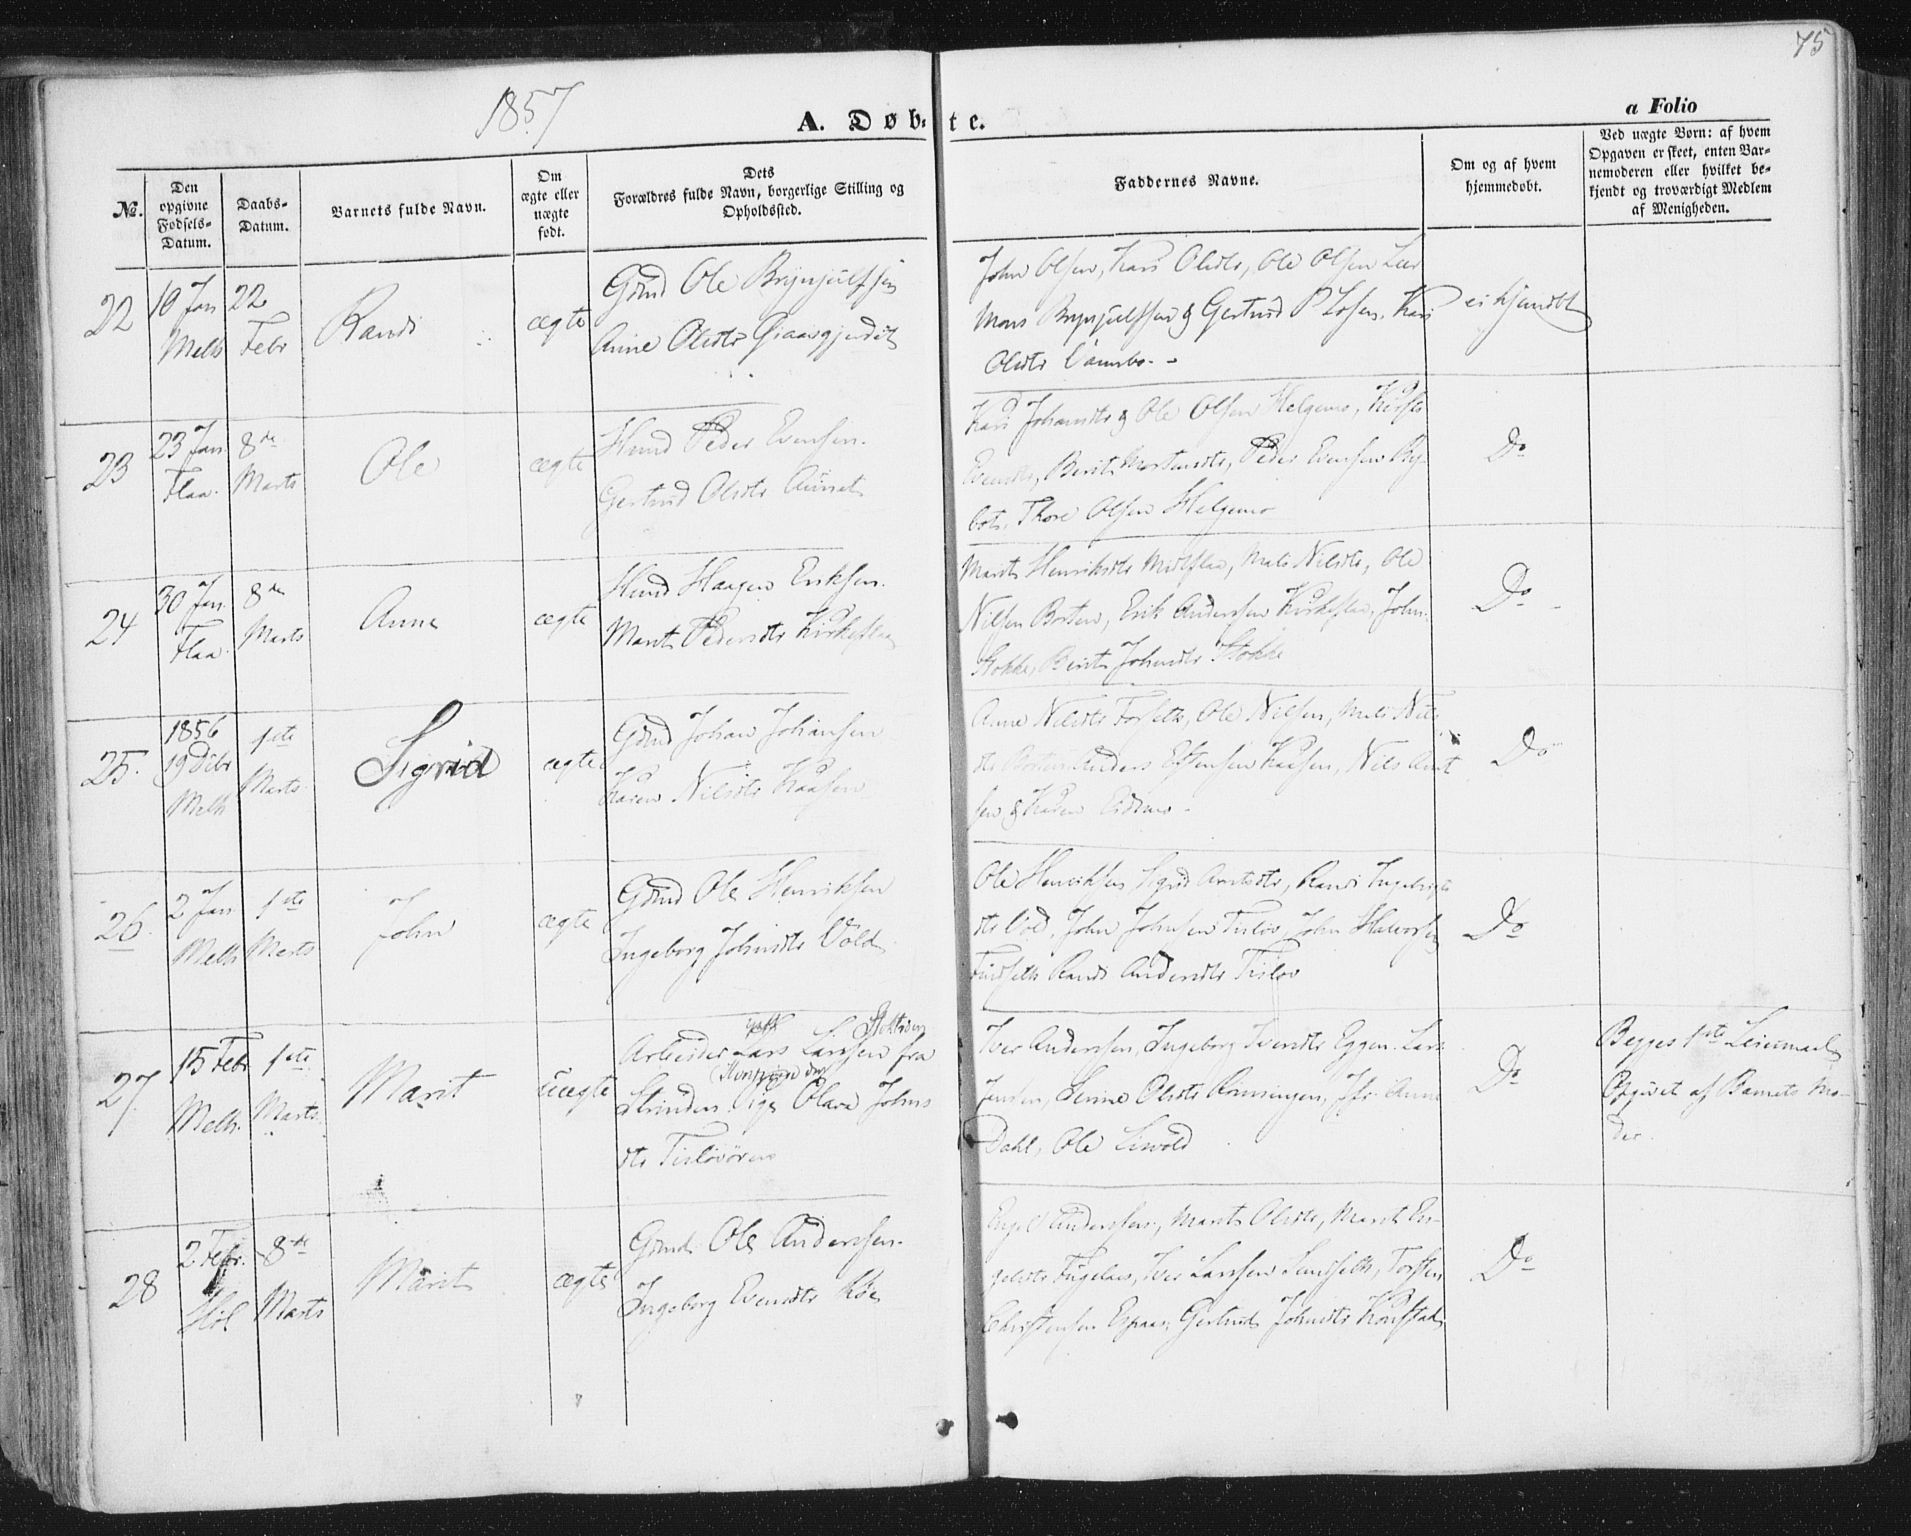 75
1857
A. Døbte.
a Folio
No.
Den opgivne Fødsels-Datum.
Daabs-Datum.
Barnets fulde Navn.
Om ægte eller uægte født.
Dets Forældres fulde Navn, borgerlige Stilling og Opholdssted.
Faddernes Navne.
Om og af hvem hjemmedøbt.
Ved uægte Børn: af hvem Opgaven er skeet, enten Barnemoderen eller hvilket bekjendt og troværdigt Medlem af Menigheden.
22
10 Jan
Melh
22
Febr
Randi
ægte
Gmd Ole Brynjulfsen
Anne Olsdtr
John Olsen, Kari Olsdtr, Ole Olsen Leer
Mons Brynjulfsen & Gertrud P Losen, Kari
Olsdtr
ei hjemdbt
23
23 Jan
Flaa.
8de
Marts
Ole
ægte
Huusmd Peder Evensen.
Gertrud Olsdtr Aunet
Kari Johansdtr & Ole Olsen Helgemo, Kirsti
Evensdtr, Berit Mortensdtr, Peder Evensen
Thore Olsen Helgemo
Do
24
30 Jan.
Flaa.
8de
Marts
Anne
ægte
Huusmd Haagen Eriksen.
Marit Pedersdtr Kirkeflaa
Marit Henriksdtr, Mali Nilsdtr, Ole
Nilsen Borten, Erik Andersen Kirkeflaa, John
Stokke, Berit Johnsdtr Stokke
Do
25.
1856
19 Dcbr
Melh
1ste
Marts
Sigrid
ægte
Gmd Johan Johansen
Karen Nilsdtr Kaasen
Anne Nilsdtr Forseth, Ole Nilsen, Mali Nils
dtr Borten Anders Estensen Kaasen, Nils Arnt
sen &
Do
26.
2 Jan
Melh
1ste
Marts
John
ægte
Gmd Ole Henriksen
Ingeborg Johnsdtr Vold
Ole Henriksen, Sigrid Arntsdtr, Randi Ingebrigts
dtr Vold, John Johnsen Tislov, John Halvorsen
Randi Andersdtr Tislov
Do
27.
15 Febr
Melh.
1ste
Marts.
Marit
uægte
Arbeider Lars Larsen fra
Strinden Pige Olava Johns
dtr Tisløvøren
Iver Andersen, Ingeborg Iversdtr Eggen. Lars
Jensen, Serine Olsdtr Rønningen, Jfr. Anne
Dahl, Ole
Do
Begges 1ste Leiermaal
Opgivet af Barnets Mo-
der.
28
2 Febr.
Höl
8de
Marts
Marit
ægte
Gmd Ole Andersen.
Ingeborg Evensdtr Røe
Engel Andersen, Marit Olsdtr, Marit En-
gelsdtr Fuglaas, Iver Larssen Sundseth, Torsten
Christensen Espaas, Gertrud Johnsdtr Kongstad
Do